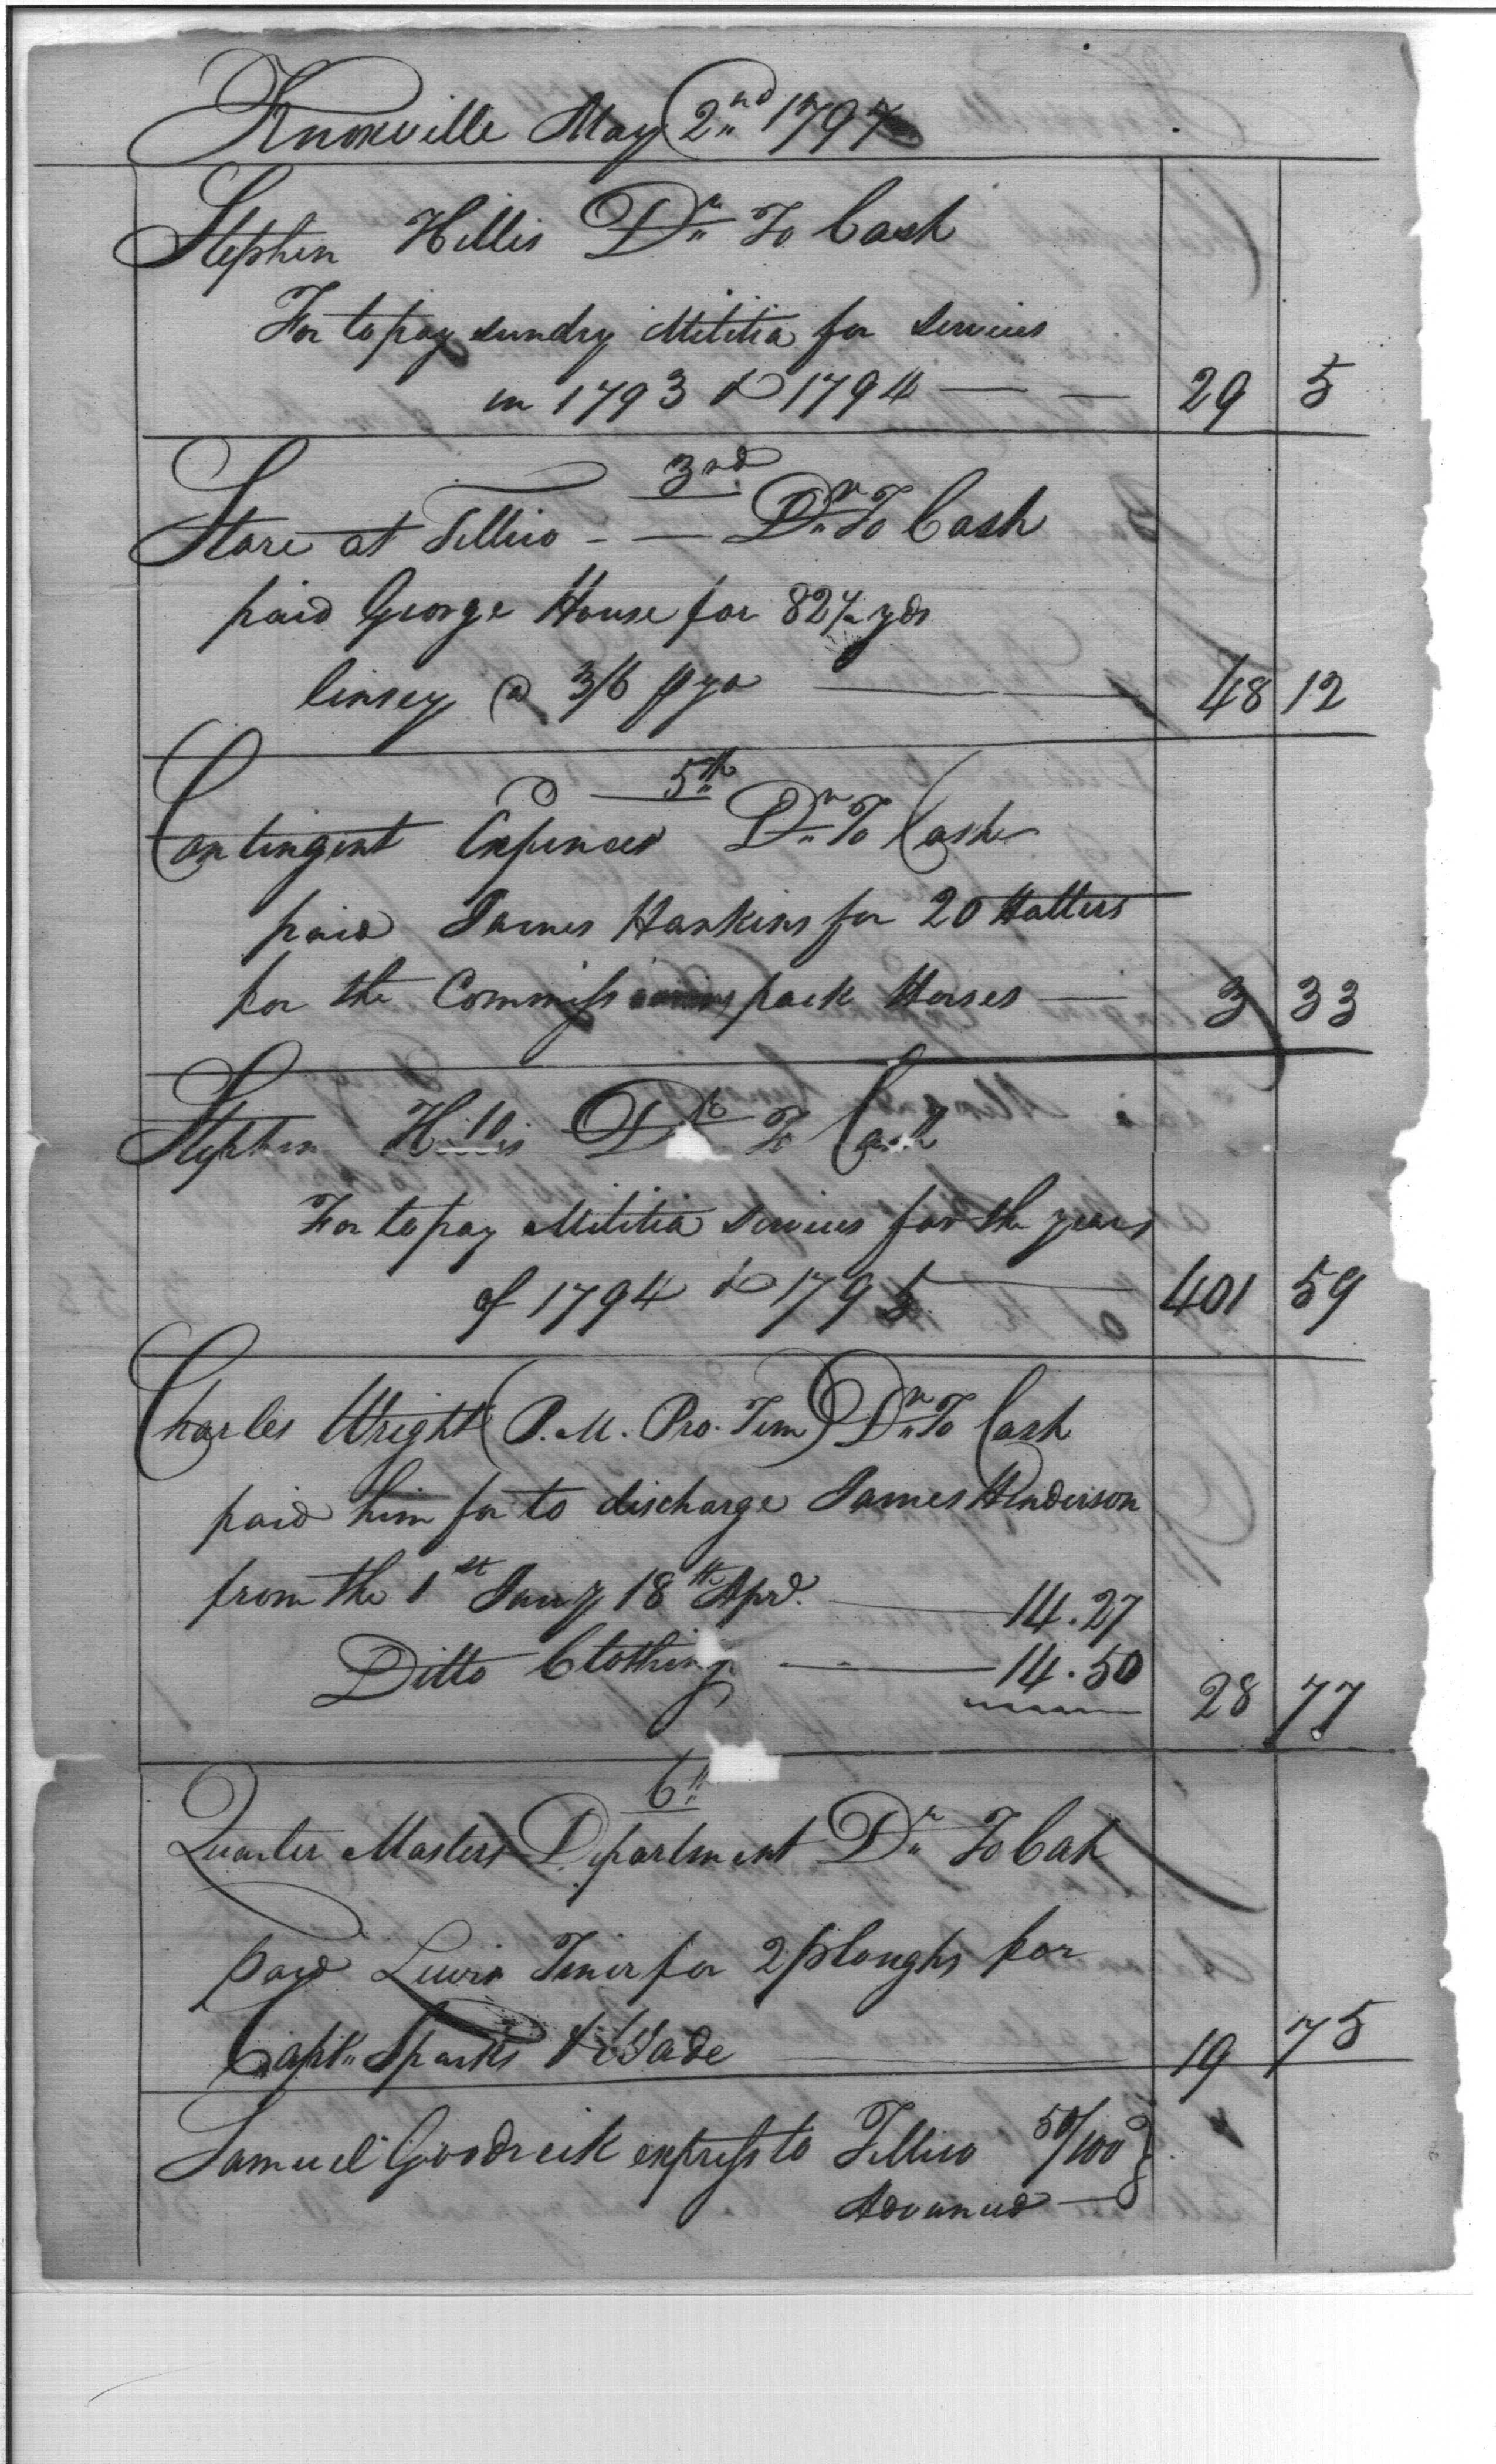 Knoxville May 2nd 1797
Stephen Hillis Dr To Cash
For to pay sundry Militia for services
in 1793 & 1794 — — 29 5
3rd
Store at Tellico - — Dr To Cash
paid George House for 82½ yds
linsey @ 3/6 p yd — 48 12
5th
Contingent Expences Dr To Cash
paid James Hankins for 20 Halters
for the Commissioners pack Horses — 3 33
Stephen Hillis Dr To Cash
For to pay Militia services for the years
of 1794 & 1795 — 401 59
Charles Wright (P. M. Pro. Tem) Dr To Cash
paid him for to discharge James Henderson
from the 1st Jany 18th Aprl. — 14.27
Ditto Clothing — 14.50 28 77
6th
Quarter Masters Department Dr To Cah
paid Lewis for 2 ploughs for
Captn Sparks & Wade — 19 75
Samuel Goodreik express to Tellico 50/100
Advanced —